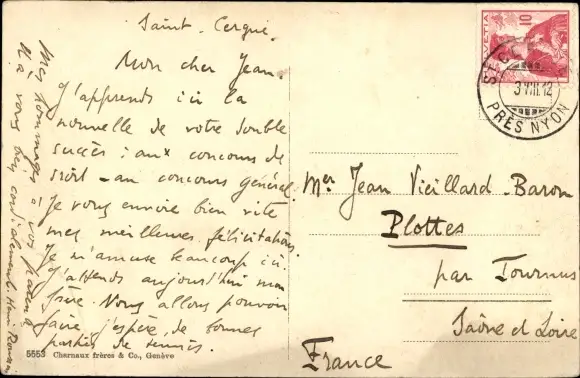 Saint-Cergue.
Mon cher Jean
J'apprends ici la
nouvelle de votre double
succès : aux concours de
droit - au concours général.
Je vous envoie bien vite
mes meilleures félicitations.
Je m'amuse beaucoup ici
J'attends aujourd'hui mon
frère. Nous allons pouvoir
faire, j'espère, de bonnes
parties de tennis.
Mes hommages à vos parents
et à vous bien cordialement. Henri
5553 Charnaux frères & Co., Genève
HELVETIA 10
3 VIII.12
PRÈS NYON
Mr Jean Vieillard-Baron
Plottes
par Tournus
Saône et Loire
France